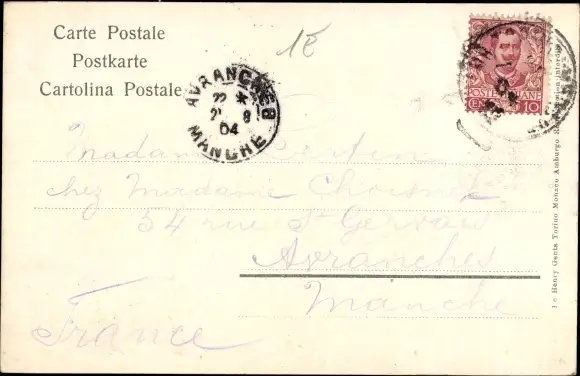 Carte Postale
Postkarte
Cartolina Postale
1E
AVRANCHES
22 *
2 8
04
MANCHE
POSTE ITALIANE
CENT 10
Madame
chez Madame Choisnel
54 rue St Gervais
Avranches
Manche
France
Henry Genta Torino Monaco Amburgo